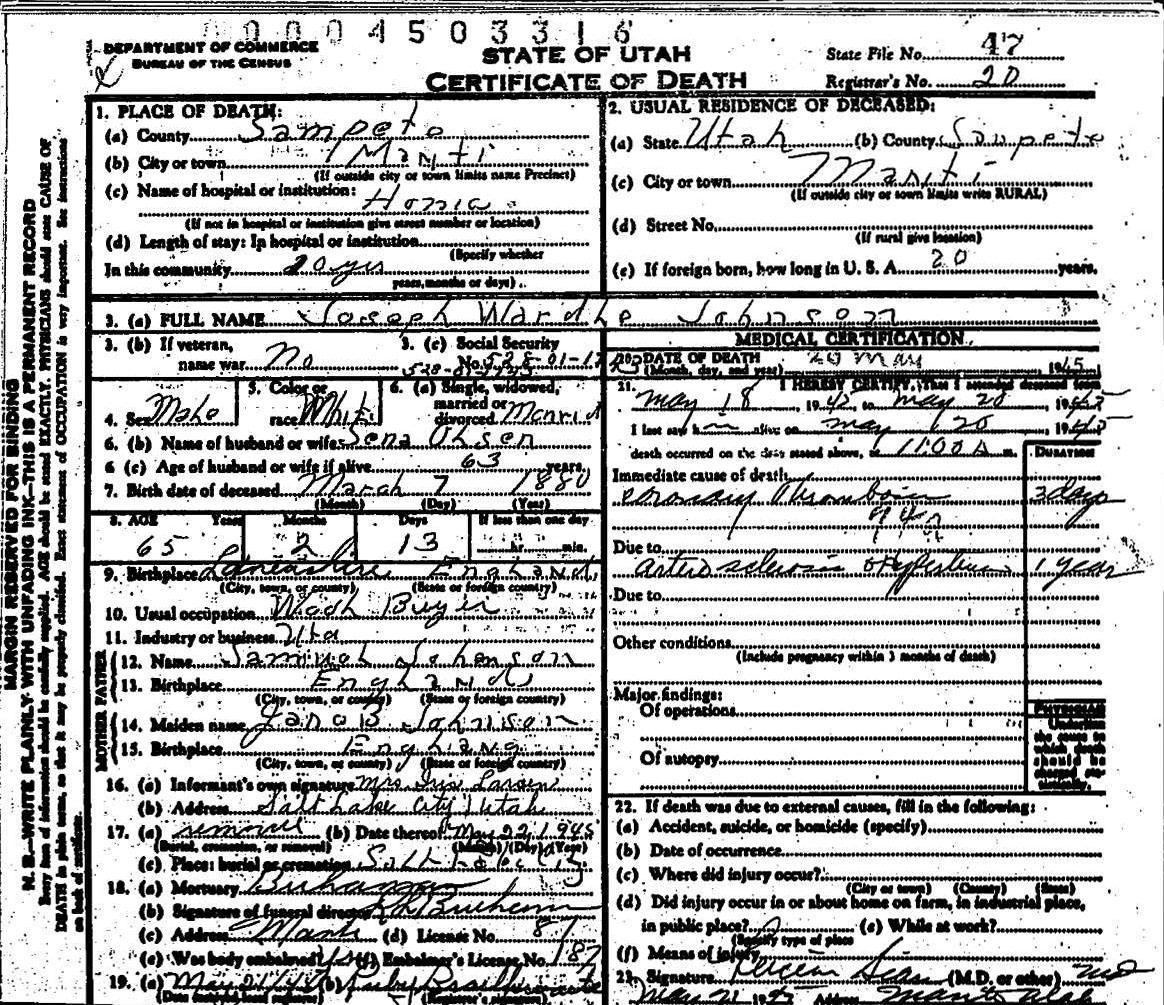 0000450331 6
DEPARTMENT OF COMMERCE
BUREAU OF THE CENSUS
STATE OF UTAH
CERTIFICATE OF DEATH
State File No. 47
Registrar's No. 20
MARGIN RESERVED FOR BINDING
N. B.—WRITE PLAINLY WITH UNFADING INK—THIS IS A PERMANENT RECORD
Every item of information should be carefully supplied. AGE should be stated EXACTLY. PHYSICIANS should state CAUSE OF
DEATH in plain terms, so that it may be properly classified. Exact statement of OCCUPATION is very important. See instructions
on back of certificate.
1. PLACE OF DEATH:
(a) County Sampete
(b) City or town Manti
(If outside city or town limits name Precinct)
(c) Name of hospital or institution:
Home
(If not in hospital or institution give street number or location)
(d) Length of stay: In hospital or institution
(Specify whether
In this community 20 yrs
years, months or days)
2. USUAL RESIDENCE OF DECEASED:
(a) State Utah (b) County Sanpete
(c) City or town Manti
(If outside city or town limits write RURAL)
(d) Street No.
(If rural give location)
(e) If foreign born, how long in U. S. A. 20 years.
3. (a) FULL NAME Joseph Wardle Johnson
3. (b) If veteran,
name war No
3. (c) Social Security
No. 528-01-
4. Sex Male
5. Color or
race White
6. (a) Single, widowed,
married or
divorced Married
6. (b) Name of husband or wife Sena Olsen
6 (c) Age of husband or wife if alive 63 years.
7. Birth date of deceased March 7 1880
(Month) (Day) (Year)
8. AGE Years Months Days If less than one day
65 2 13 hr. min.
9. Birthplace Lancashire England
(City, town, or county) (State or foreign country)
10. Usual occupation Wool Buyer
11. Industry or business
FATHER
12. Name Johnson
13. Birthplace England
(City, town, or county) (State or foreign country)
MOTHER
14. Maiden name Johnson
15. Birthplace England
(City, town, or county) (State or foreign country)
16. (a) Informant's own signature Mrs Iris Larsen
(b) Address Salt Lake City Utah
17. (a) removal (b) Date thereof May 22 1945
(Burial, cremation, or removal) (Month) (Day) (Year)
(c) Place: burial or cremation Salt Lake City
18. (a) Mortuary
(b) Signature of funeral director
(c) Address Manti (d) License No. 87
(e) Was body embalmed? (f) Embalmer's License No. 187
19. (a) May 21/45 (b) Ruby
(Date received local registrar) (Registrar's signature)
MEDICAL CERTIFICATION
20. DATE OF DEATH 20 May 1945
(Month, day, and year)
21. I HEREBY CERTIFY, That I attended deceased from
May 18, 1945, to May 20, 1945
I last saw him alive on May 20, 1945
death occurred on the date stated above, at 11:00 A m.
DURATION
Immediate cause of death
Coronary Thrombosis 3 days
94
Due to
arterio sclerosis 1 year
Due to
Other conditions
(Include pregnancy within 3 months of death)
Major findings:
Of operations
Of autopsy
PHYSICIAN
Underline
the cause to
which death
should be
charged sta-
tistically.
22. If death was due to external causes, fill in the following:
(a) Accident, suicide, or homicide (specify)
(b) Date of occurrence
(c) Where did injury occur?
(City or town) (County) (State)
(d) Did injury occur in or about home on farm, in industrial place,
in public place? (e) While at work?
(Specify type of place
(f) Means of injury
23. Signature (M.D. or other) MD
May 21 1945 Address Manti Utah